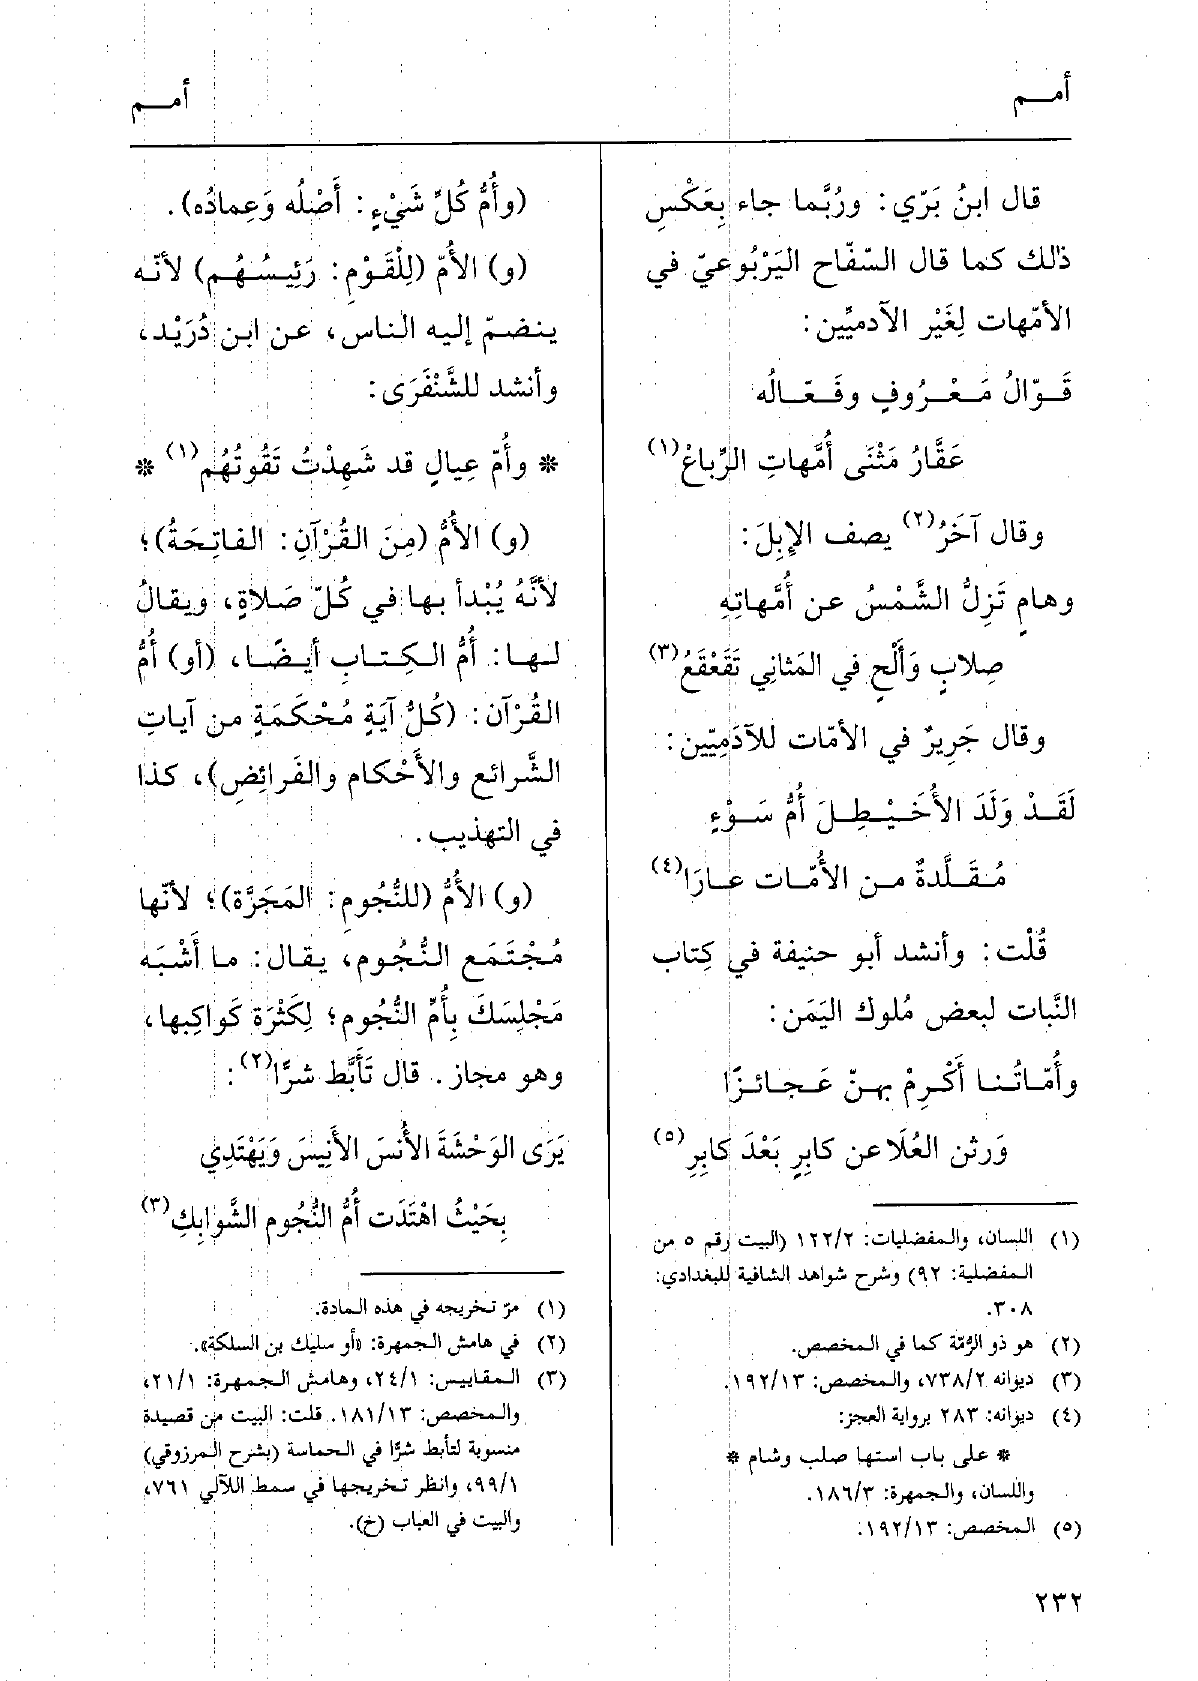 أمـــم
أمـــم
قال ابنُ بَرّي: ورُبَّما جاء بِعَكْسِ
ذلك كما قال السّفّاح اليَرْبُوعيّ في
الأمّهات لِغَيْر الآدميِّين:
قَـوّالُ مَـعْـرُوفٍ وفَـعّـالُه
عَقَّارُ مَثْنَى أُمَّهاتِ الرِّباعْ(١)
وقال آخَرُ(٢) يصف الإِبِلَ:
وهامٍ تَزِلُّ الشَّمْسُ عن أُمَّهاتِهِ
صِلابٍ وَأَلْحٍ في المَثانِي تَقَعْقَعُ(٣)
وقال جَرِيرٌ في الأمّات للآدَمِيّين:
لَقَـدْ وَلَدَ الأُخَـيْـطِـلَ أُمُّ سَـوْءٍ
مُـقَـلَّدةٌ مـن الأُمّـات عـارَا(٤)
قُلْت: وأنشد أبو حنيفة في كِتاب
النَّبات لبعض مُلوك اليَمَن:
وأُمّاتُـنـا أَكْـرِمْ بهـنّ عَـجـائـزًا
وَرثن العُلَا عن كابِرٍ بَعْدَ كابِرِ(٥)
(١) اللسان، والمفضليات: ١٢٢/٢ (البيت رقم ٥ من
المفضلية: ٩٢) وشرح شواهد الشافية للبغدادي:
٣٠٨.
(٢) هو ذو الرُّمّة كما في المخصص.
(٣) ديوانه ٧٣٨/٢، والمخصص: ١٩٢/١٣.
(٤) ديوانه: ٢٨٣ برواية العجز:
* على باب استها صلب وشام *
واللسان، والجمهرة: ١٨٦/٣.
(٥) المخصص: ١٩٢/١٣.
(وأُمُّ كُلِّ شَيْءٍ: أَصْلُه وَعِمادُه).
(و) الأُمّ (لِلْقَوْمِ: رَئِيسُهُم) لأنّه
ينضمّ إليه الناس، عن ابن دُرَيْد،
وأنشد للشَّنْفَرَى:
* وأُمّ عِيالٍ قد شَهِدْتُ تَقُوتُهُم(١) *
(و) الأُمُّ (مِنَ القُرْآنِ: الفاتِحَةُ)؛
لأنَّهُ يُبْدأ بها في كُلّ صَلاةٍ، ويقالُ
لـهـا: أُمُّ الـكِـتـابِ أيـضًـا، (أو) أُمُّ
القُرْآن: (كُلُّ آيَةٍ مُحْكَمَةٍ من آياتِ
الشَّرائع والأَحْكام والفَرائضِ)، كذا
في التهذيب.
(و) الأُمُّ (للنُّجُومِ: المَجَرَّة)؛ لأنّها
مُجْتَمَع النُّجُوم، يقال: ما أَشْبَه
مَجْلِسَكَ بِأُمِّ النُّجُوم؛ لِكَثْرَة كَواكِبها،
وهو مجاز. قال تَأَبَّط شرًّا(٢):
يَرَى الوَحْشَةَ الأُنسَ الأَنِيسَ وَيَهْتَدِي
بِحَيْثُ اهْتَدَت أُمُّ النُّجُوم الشَّوابِكِ(٣)
(١) مرّ تخريجه في هذه المادة.
(٢) في هامش الجمهرة: «أو سليك بن السلكة».
(٣) المقاييس: ٢٤/١، وهامش الجمهرة: ٢١/١،
والمخصص: ١٨١/١٣. قلت: البيت من قصيدة
منسوبة لتأبط شرًّا في الحماسة (بشرح المرزوقي)
٩٩/١، وانظر تخريجها في سمط اللآلي ٧٦١،
والبيت في العباب (خ).
٢٣٢